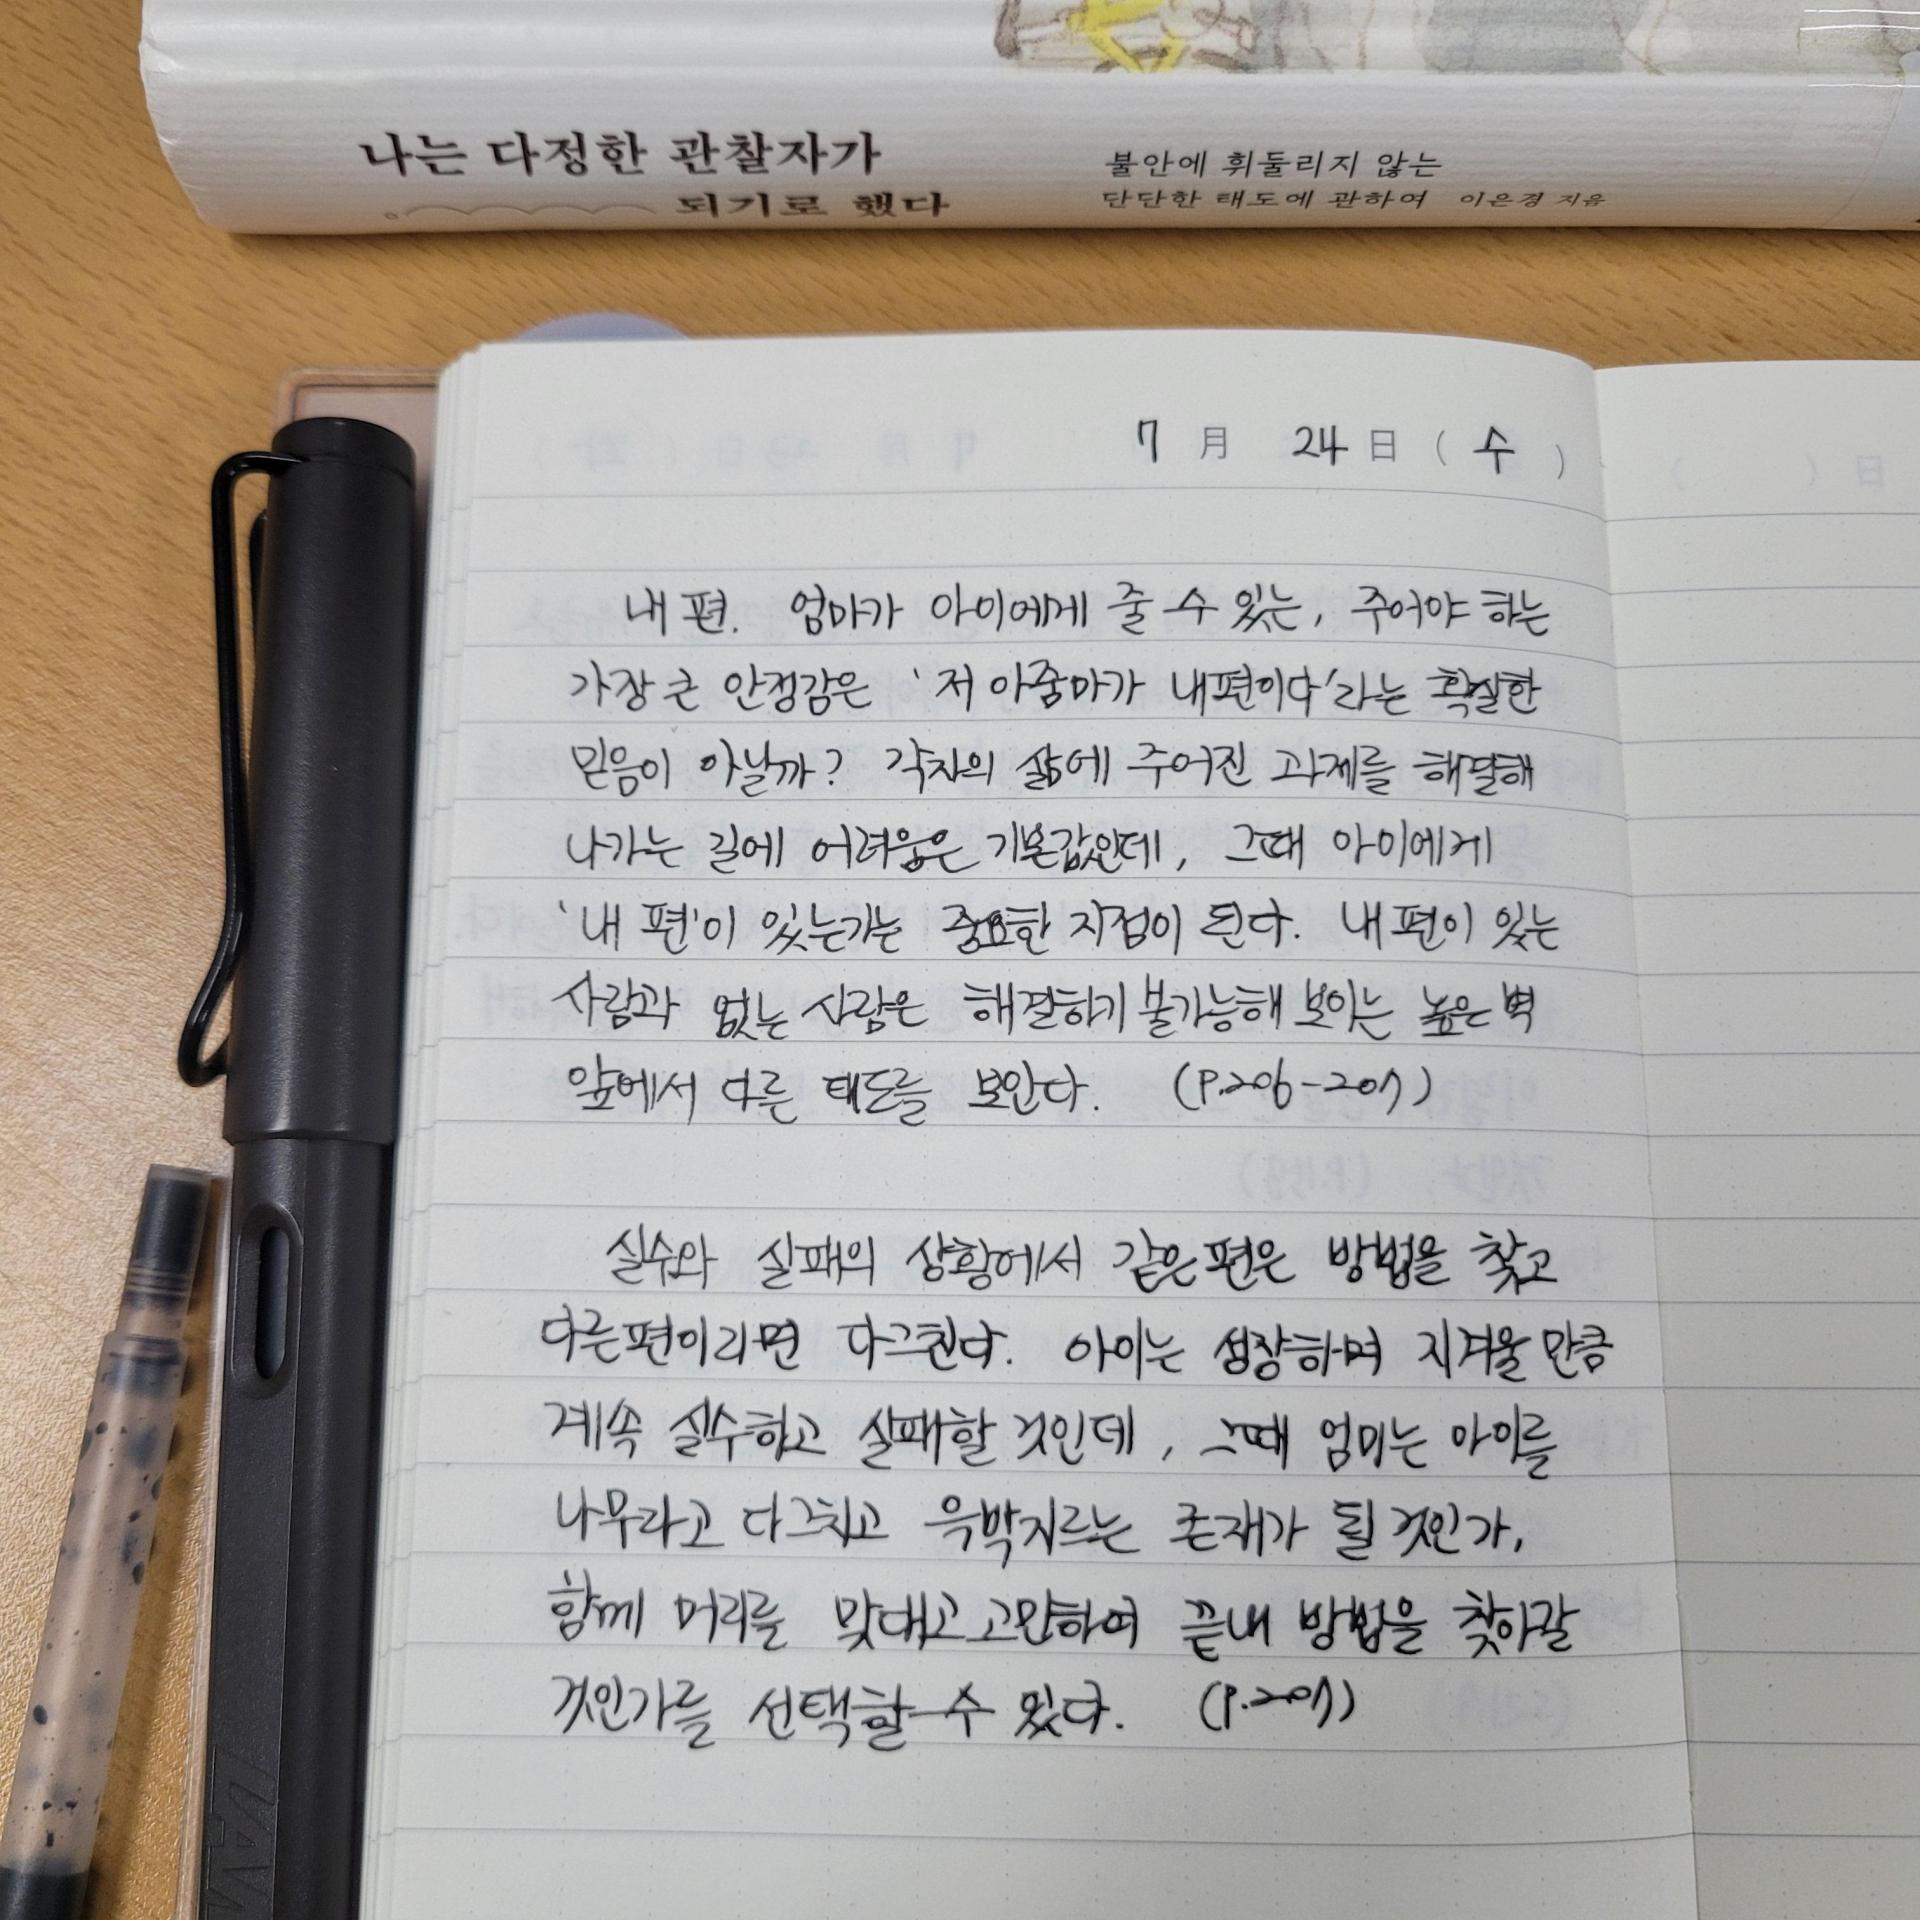 나는 다정한 관찰자가
되기로 했다
불안에 휘둘리지 않는
단단한 태도에 관하여 이은경 지음
7 月 24 日 ( 수 )
日 ( )
내 편. 엄마가 아이에게 줄 수 있는, 주어야 하는
가장 큰 안정감은 '저 아줌마가 내편이다'라는 확실한
믿음이 아닐까? 각자의 삶에 주어진 과제를 해결해
나가는 길에 어려움은 기본값인데, 그때 아이에게
'내 편'이 있는가는 중요한 지점이 된다. 내 편이 있는
사람과 없는 사람은 해결하기 불가능해 보이는 높은 벽
앞에서 다른 태도를 보인다. (P.206-207)
실수와 실패의 상황에서 같은편은 방법을 찾고
다른편이라면 다그친다. 아이는 성장하며 지겨울 만큼
계속 실수하고 실패할 것인데, 그때 엄마는 아이를
나무라고 다그치고 윽박지르는 존재가 될 것인가,
함께 머리를 맞대고 고민하여 끝내 방법을 찾아갈
것인가를 선택할 수 있다. (P.207)
LAM